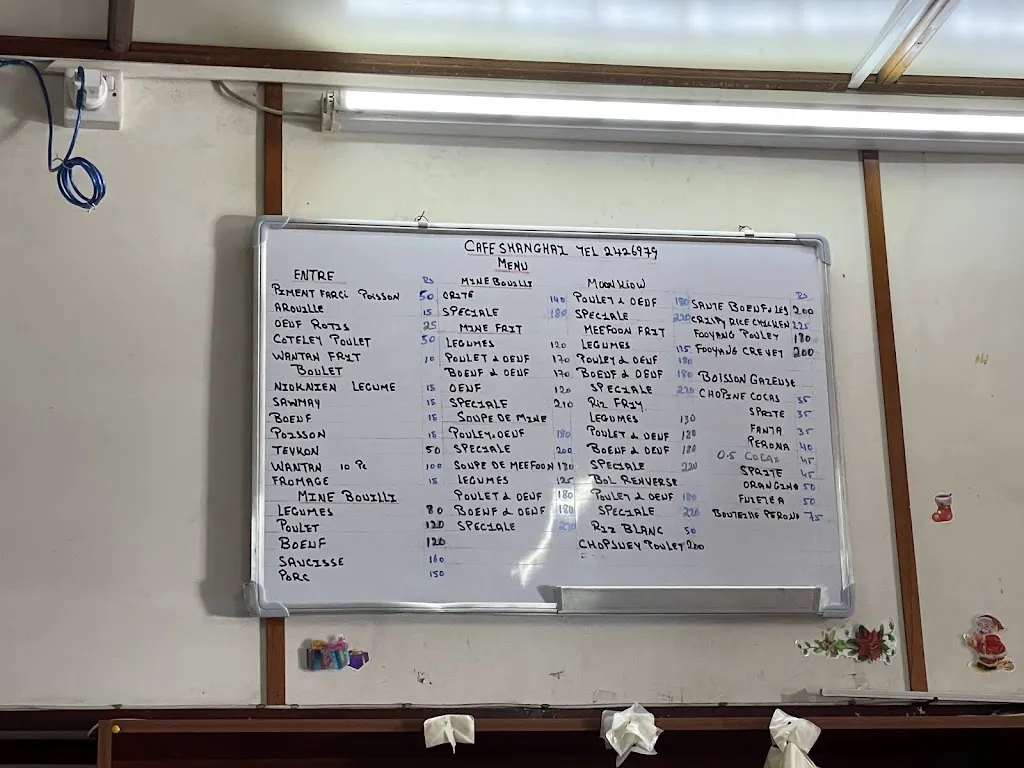 CAFE SHANGHAI TEL 2426979
MENU
ENTRE Rs
PIMENT FARCI POISSON 50
AROUILLE 15
OEUF ROTIS 25
COTELEY POULET 50
WANTAN FRIT 10
BOULET
NIOKNIEN LEGUME 15
SAWMAY 15
BOEUF 15
POISSON 15
TEUKON 50
WANTAN 10 PC 100
FROMAGE 15
MINE BOUILLI
LEGUMES 80
POULET 120
BOEUF 120
SAUCISSE 160
PORC 150
MINE BOUILLI
140
SPECIALE 180
MINE FRIT
LEGUMES 120
POULET & OEUF 170
BOEUF & OEUF 170
OEUF 120
SPECIALE 210
SOUPE DE MINE
POULET. OEUF 180
SPECIALE 200
SOUPE DE MEEFOON 130
LEGUMES 125
POULET & OEUF 180
BOEUF & OEUF 180
SPECIALE 220
MOONKIOW
POULET & OEUF 180
SPECIALE 220
MEEFOON FRIT
LEGUMES 125
POULEY & OEUF 180
BOEUF & OEUF 180
SPECIALE 220
RIZ FRIY
LEGUMES 130
POULET & OEUF 180
BOEUF & OEUF 180
SPECIALE 220
BOL RENVERSE
POULEY & OEUF 180
SPECIALE 220
RIZ BLANC 50
CHOPSUEY POULEY 200
Rs
SAUTE BOEUF & LEG 200
CRISPY RICE CHICKEN 225
FOOYANG POULEY 180
FOOYANG CREVET 200
BOISSON GAZEUSE
CHOPINE COCAS 35
SPRITE 35
FANTA 35
PERONA 40
0.5 COCAS 45
SPRITE 45
ORANGINA 50
FUZETEA 50
BOUTEILLE PERONA 75